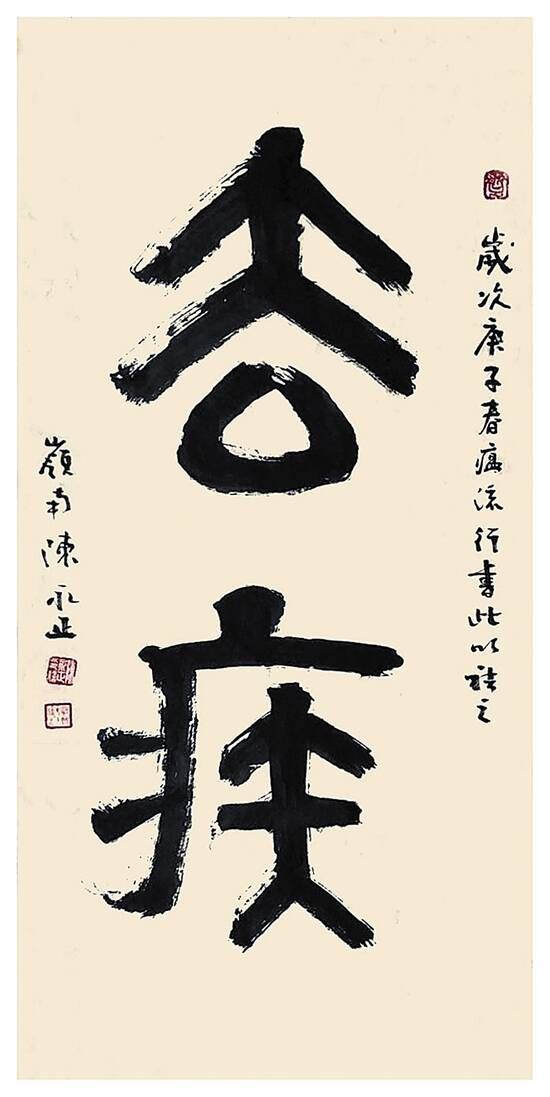 歲次庚子春瘟流行書此以祛之
去疾
嶺南陳永正